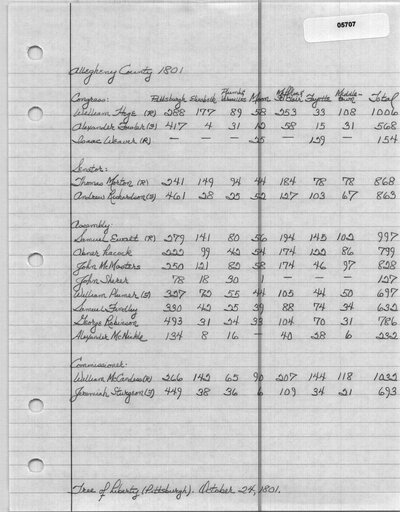 05707
Allegheny County 1801
Plumb & Mifflin & Middle-
Congress: Pittsburgh Elizabeth Versailles Moon St. Clair Fayette town Total
William Hoge (R) 288 177 89 58 253 33 108 1006
Alexander Fowler (F) 417 4 31 12 58 15 31 568
Isaac Weaver (R) — — — 25 — 129 — 154
Senator:
Thomas Morton (R) 241 149 94 44 184 78 78 868
Andrew Richardson (F) 461 28 25 52 127 103 67 863
Assembly:
Samuel Ewalt (R) 279 141 80 56 194 145 102 997
Abner Lacock 222 99 42 54 174 122 86 799
John McMasters 250 121 82 58 174 46 97 828
John 78 18 30 1 — — — 127
William Plumer (F) 327 72 55 44 105 44 50 697
Samuel Findley 330 42 25 39 88 74 34 632
George Robinson 493 31 24 33 104 70 31 786
Alexander McNickle 134 8 16 — 40 28 6 232
Commissioner:
William McCandless (R) 266 142 65 90 207 144 118 1032
Jeremiah Sturgeon (F) 449 38 36 6 109 34 21 693
Tree of Liberty (Pittsburgh). October 24, 1801.